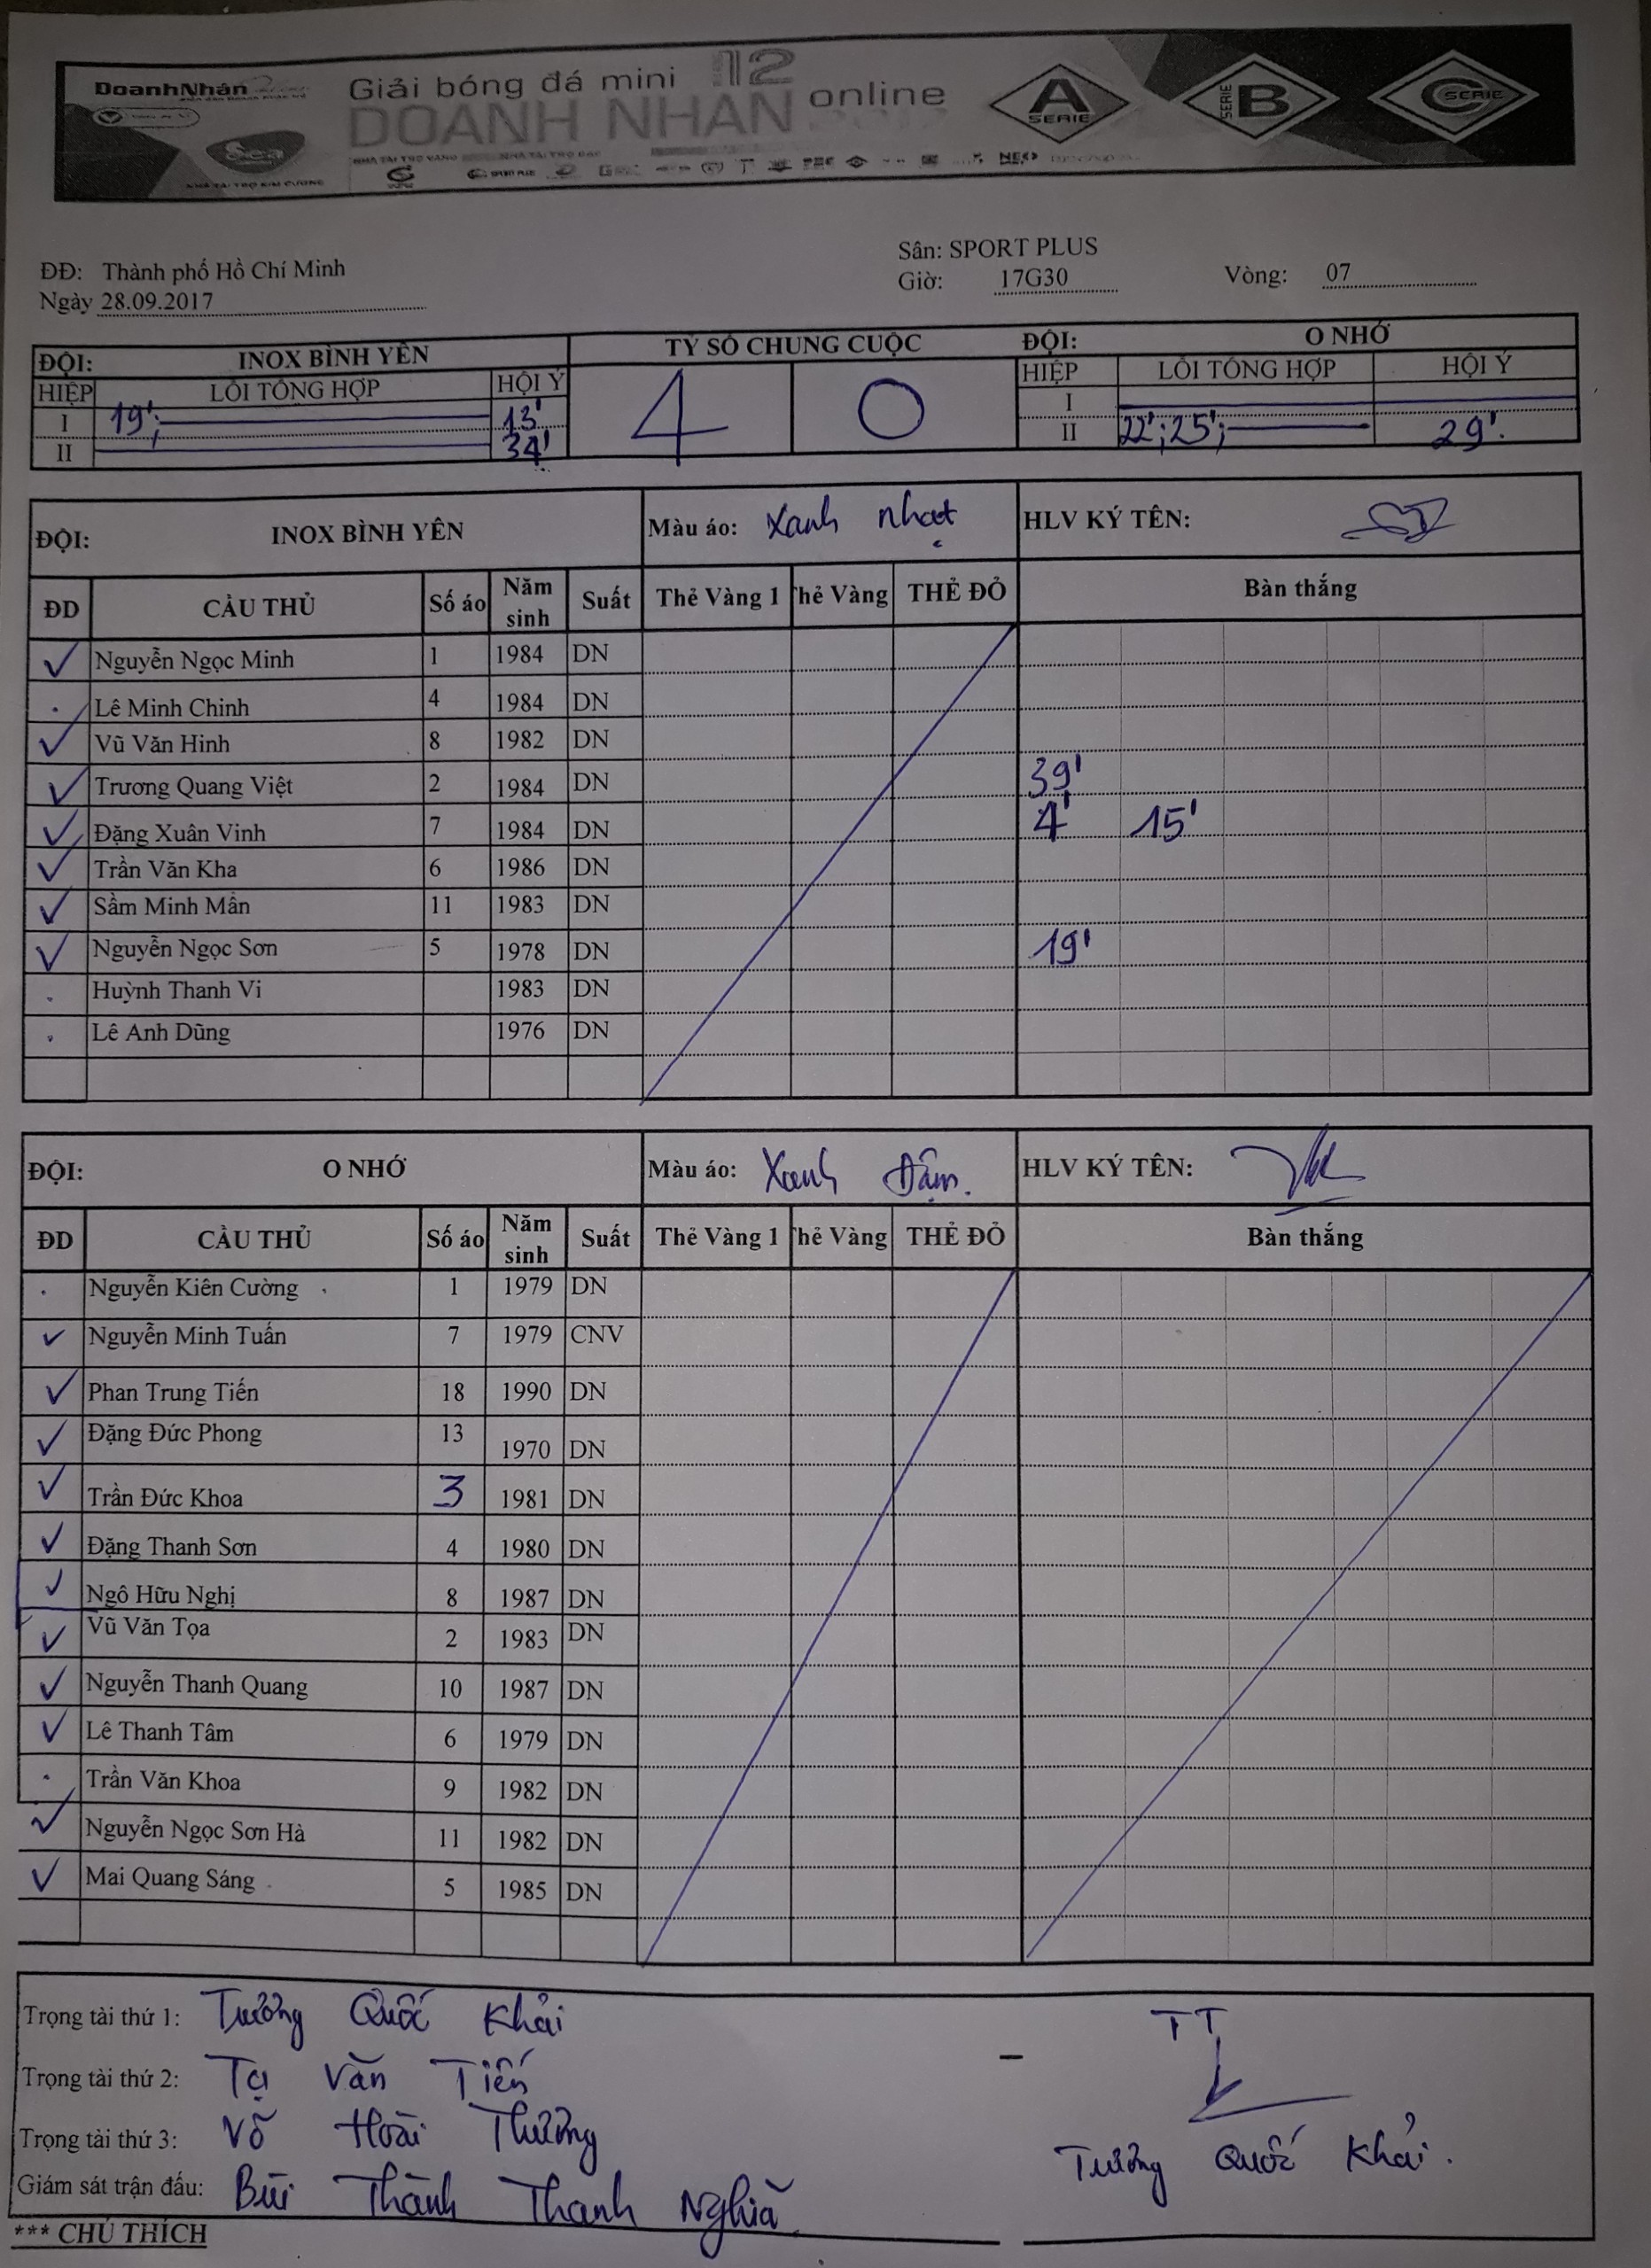 DoanhNhân
Giải bóng đá mini 12
DOANH NHÂN online
A SERIE
SERIE B
C SERIE
Sea
NHÀ TÀI TRỢ KIM CƯƠNG
NHÀ TÀI TRỢ VÀNG
NHÀ TÀI TRỢ BẠC
Sân: SPORT PLUS
ĐĐ: Thành phố Hồ Chí Minh
Giờ: 17G30 Vòng: 07
Ngày 28.09.2017
ĐỘI: INOX BÌNH YÊN TỶ SỐ CHUNG CUỘC ĐỘI: O NHỚ
HIỆP LỖI TỔNG HỢP HỘI Ý 4 0 HIỆP LỖI TỔNG HỢP HỘI Ý
I 19'; 13' I
II 34' II 22'; 25'; 29'.
ĐỘI: INOX BÌNH YÊN Màu áo: Xanh nhạt HLV KÝ TÊN:
ĐD CẦU THỦ Số áo Năm sinh Suất Thẻ Vàng 1 Thẻ Vàng THẺ ĐỎ Bàn thắng
✓ Nguyễn Ngọc Minh 1 1984 DN
. Lê Minh Chinh 4 1984 DN
✓ Vũ Văn Hinh 8 1982 DN
✓ Trương Quang Việt 2 1984 DN 39'
✓ Đặng Xuân Vinh 7 1984 DN 4' 15'
✓ Trần Văn Kha 6 1986 DN
✓ Sầm Minh Mẫn 11 1983 DN
✓ Nguyễn Ngọc Sơn 5 1978 DN 19'
. Huỳnh Thanh Vi 1983 DN
. Lê Anh Dũng 1976 DN
ĐỘI: O NHỚ Màu áo: Xanh Đậm. HLV KÝ TÊN:
ĐD CẦU THỦ Số áo Năm sinh Suất Thẻ Vàng 1 Thẻ Vàng THẺ ĐỎ Bàn thắng
. Nguyễn Kiên Cường 1 1979 DN
✓ Nguyễn Minh Tuấn 7 1979 CNV
✓ Phan Trung Tiến 18 1990 DN
✓ Đặng Đức Phong 13 1970 DN
✓ Trần Đức Khoa 3 1981 DN
✓ Đặng Thanh Sơn 4 1980 DN
✓ Ngô Hữu Nghị 8 1987 DN
✓ Vũ Văn Tọa 2 1983 DN
✓ Nguyễn Thanh Quang 10 1987 DN
✓ Lê Thanh Tâm 6 1979 DN
. Trần Văn Khoa 9 1982 DN
✓ Nguyễn Ngọc Sơn Hà 11 1982 DN
✓ Mai Quang Sáng 5 1985 DN
Trọng tài thứ 1: Tương Quốc Khải TT
Trọng tài thứ 2: Tạ Văn Tiến
Trọng tài thứ 3: Võ Hoài Thương Tương Quốc Khải.
Giám sát trận đấu: Bùi Thành Thanh Nghià
*** CHÚ THÍCH